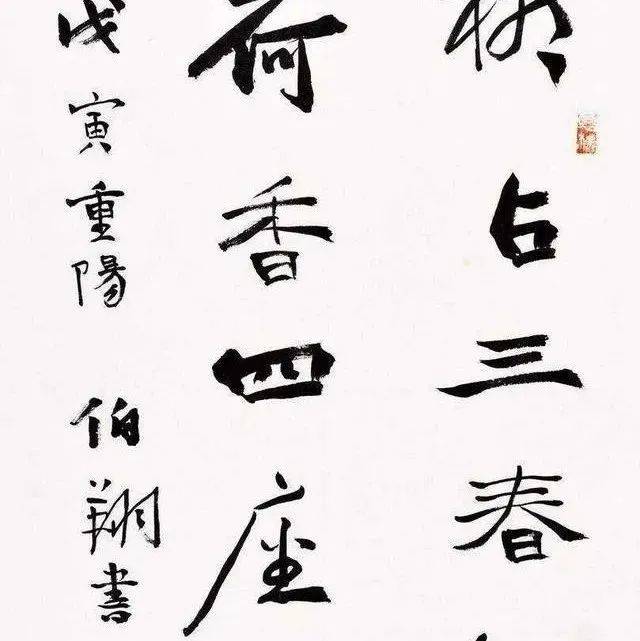 柳占三春
荷香四座
戊寅重陽 伯翔書